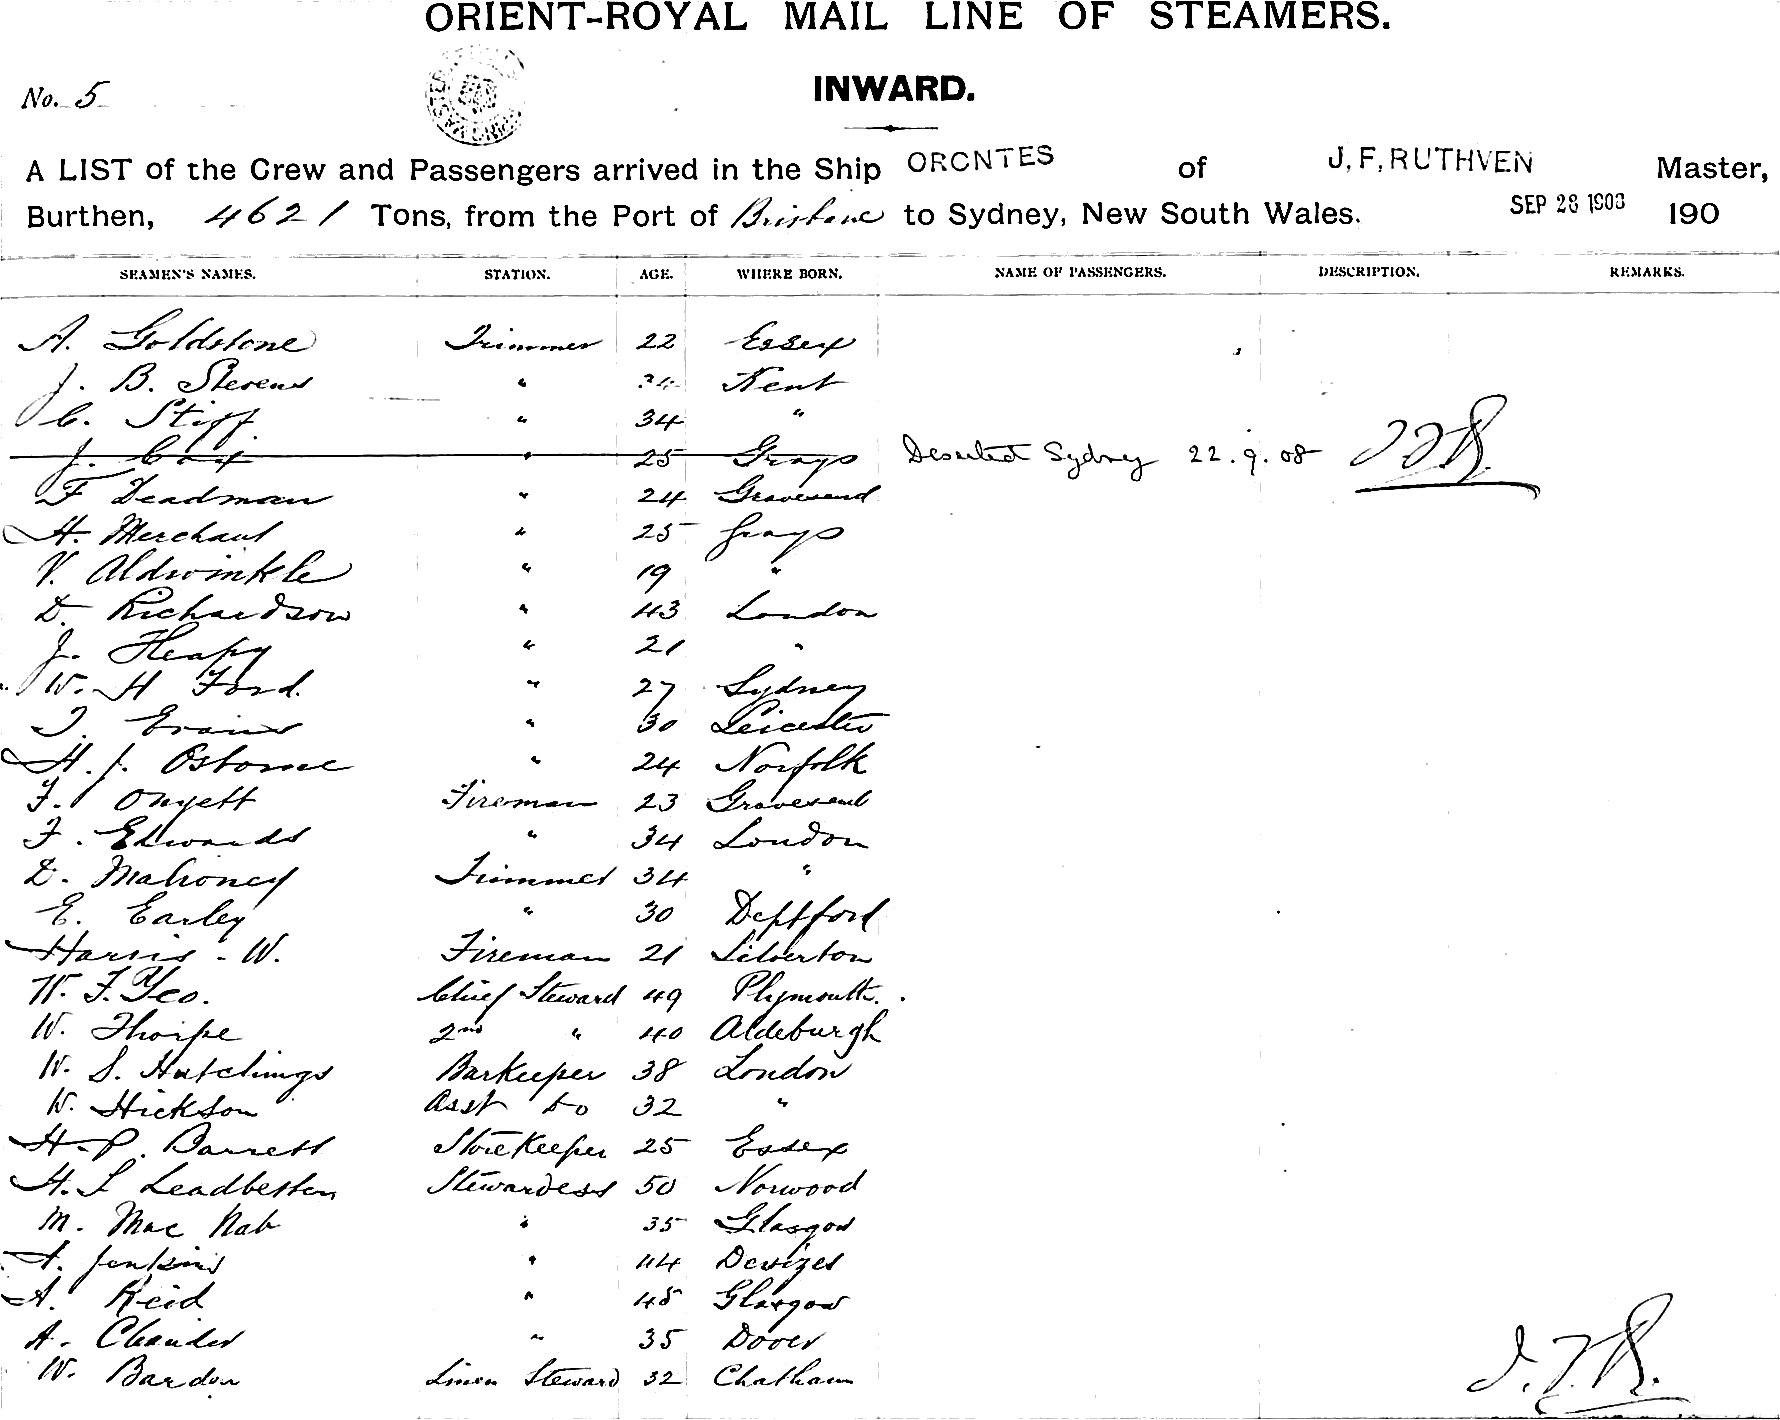 ORIENT-ROYAL MAIL LINE OF STEAMERS.
No. 5
INWARD.
A LIST of the Crew and Passengers arrived in the Ship ORCNTES of J, F, RUTHVEN Master,
Burthen, 4621 Tons, from the Port of Brisbane to Sydney, New South Wales. SEP 28 1908 190
SEAMEN'S NAMES. STATION. AGE. WHERE BORN. NAME OF PASSENGERS. DESCRIPTION. REMARKS.
A. Goldstone Trimmer 22 Essex
J. B. Stevens " 34 Kent
C. Stiff " 34 "
J. Cox " 25 Grays Deserted Sydney 22.9.08 JFR.
F Deadman " 24 Gravesend
H. Merchant " 25 Grays
V. Aldwinkle " 19 "
D. Richardson " 43 London
J. Heapy " 21 "
W. H Ford. " 27 Sydney
T. Evans " 30 Leicester
H. J. Osborne " 24 Norfolk
F. Onyett Fireman 23 Gravesend
F. Edwards " 34 London
D. Mahoney Trimmer 34 "
E. Earley " 30 Deptford
Harris - W. Fireman 21 Silverton
W. F. Yeo. Chief Steward 49 Plymouth.
W. Thorpe 2nd " 40 Aldeburgh
W. S. Hutchings Barkeeper 38 London
W. Hickson Asst do 32 "
H. P. Barrett Storekeeper 25 Essex
H. L Leadbetter Stewardess 50 Norwood
M. Mac Nab " 35 Glasgow
A. Jenkins " 44 Devizes
A. Reid " 45 Glasgow
A. " 35 Dover
W. Bardon Linen Steward 32 Chatham
J.F.R.